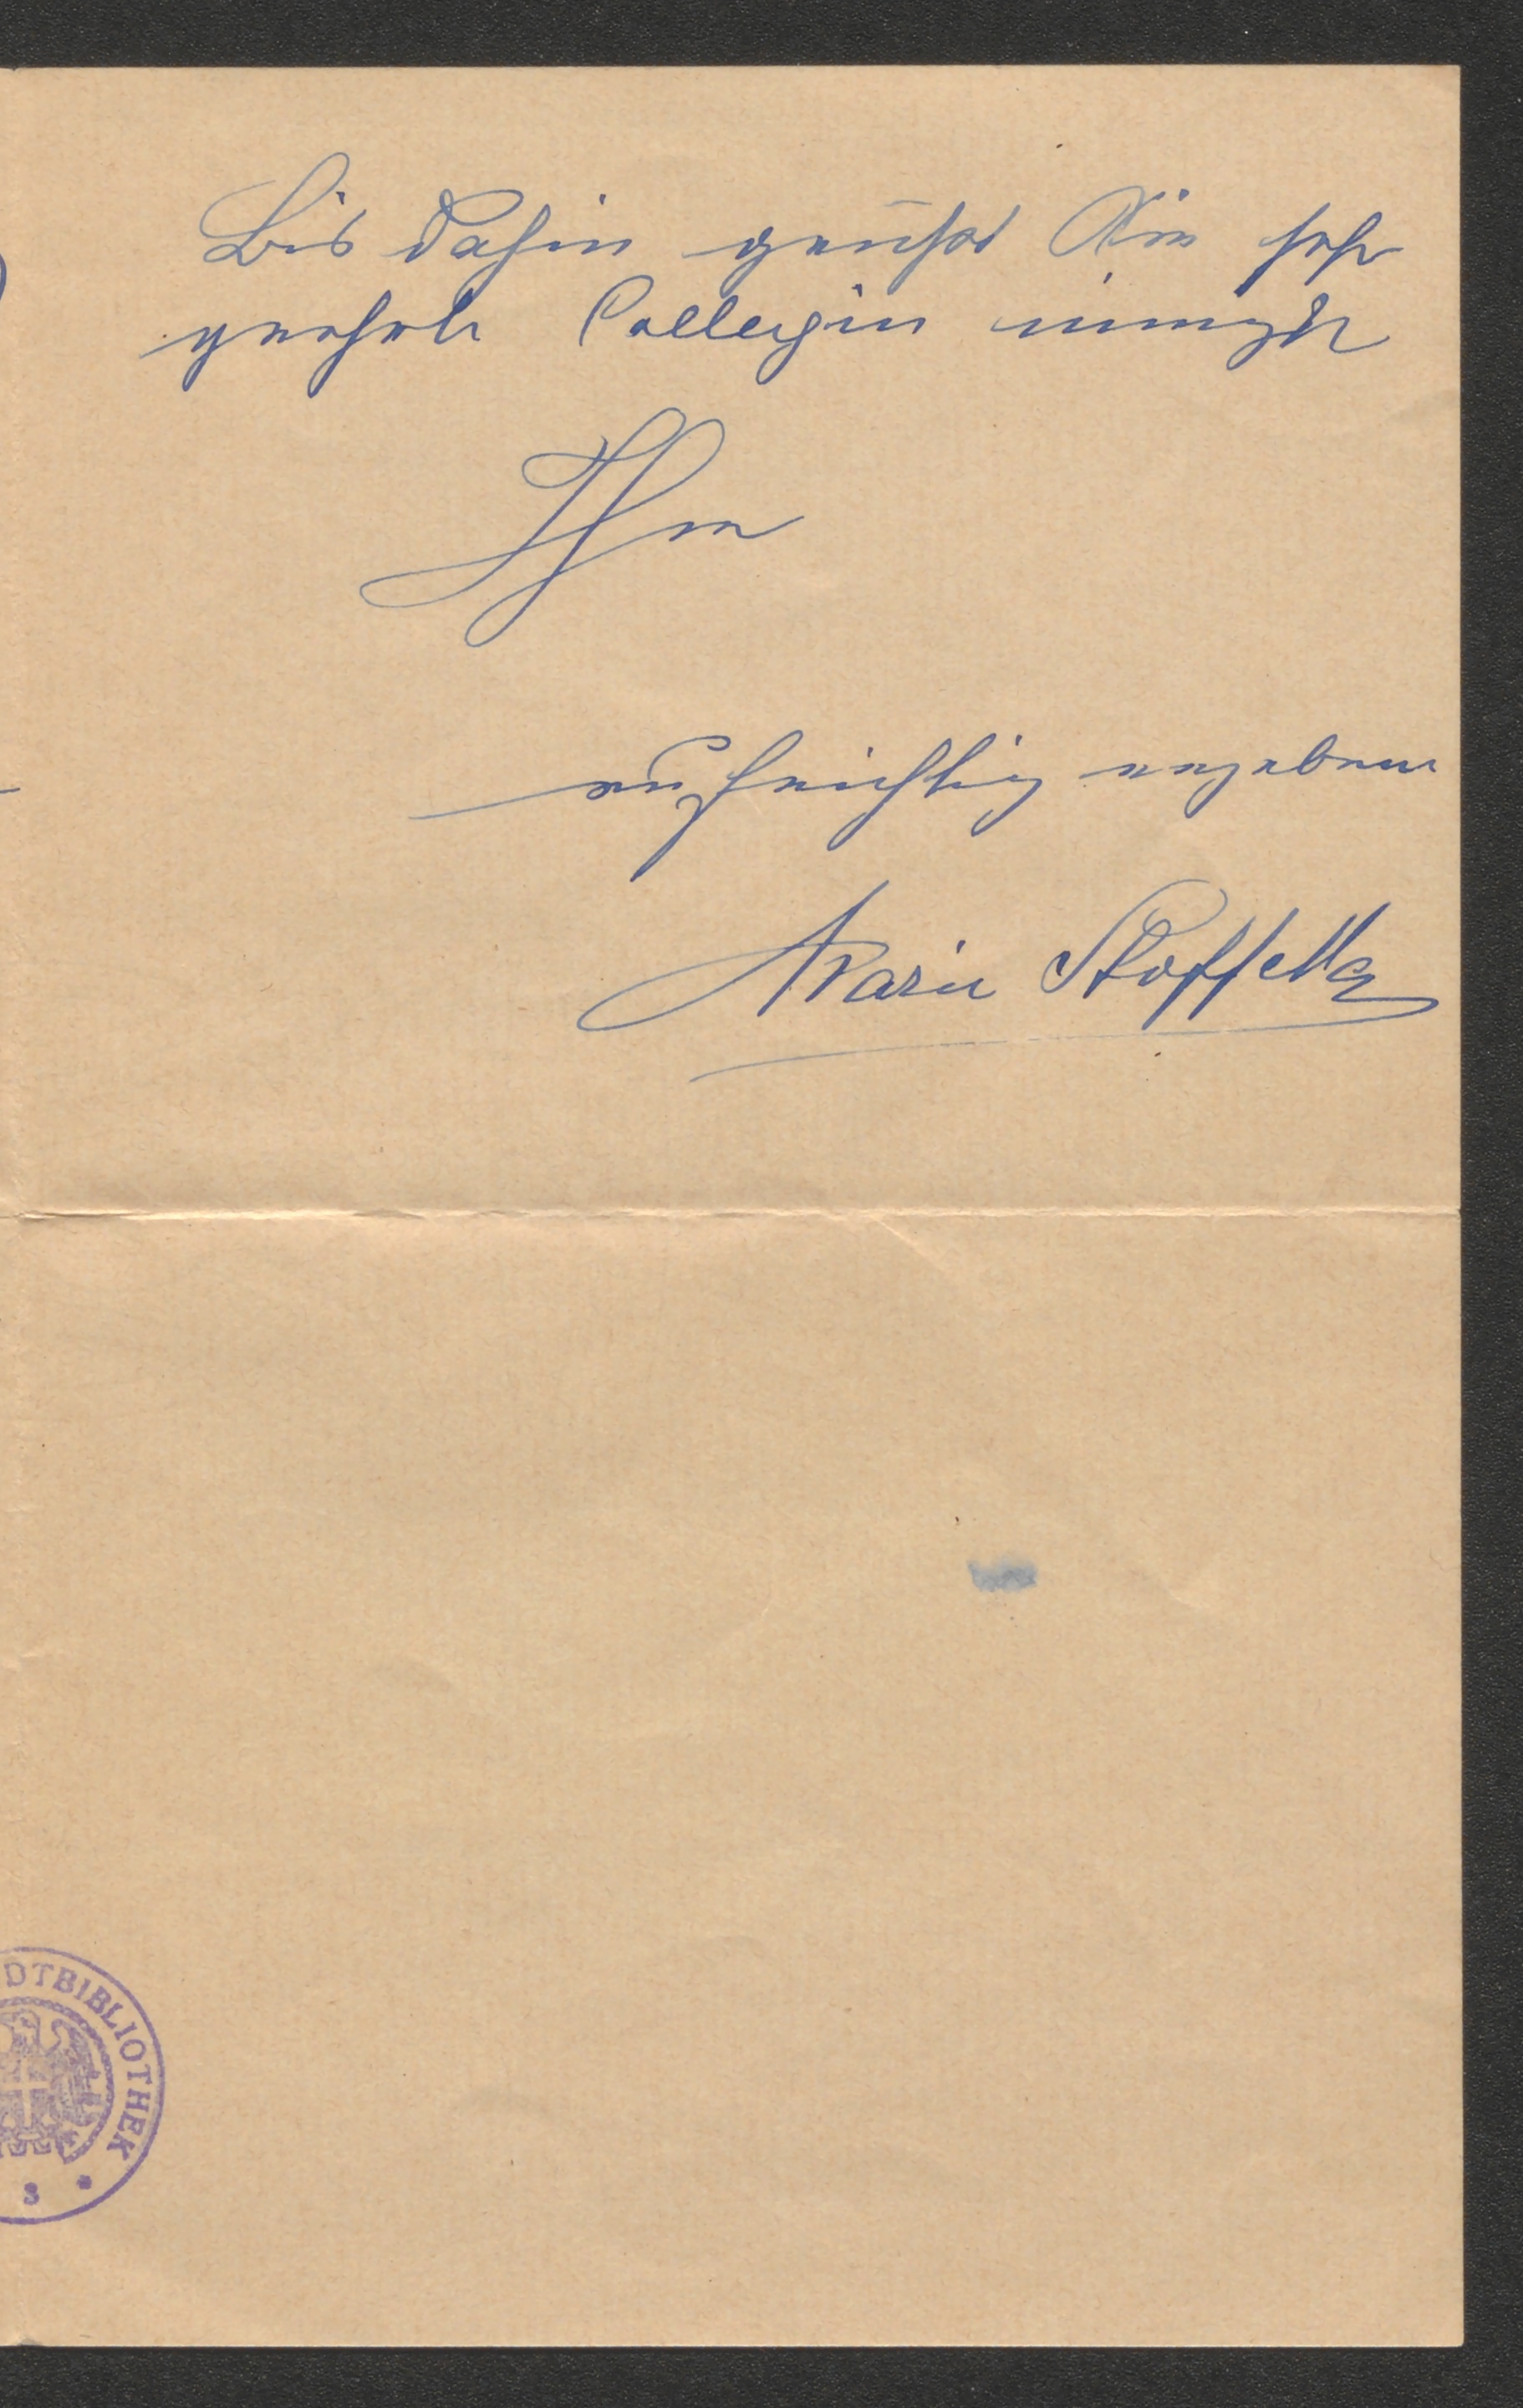 Bis dahin grüßt Sie sehr
geehrte Collegin innigst
Ihre
aufrichtig ergebene
Marie Stoffella
DTBIBLIOTHEK
S *